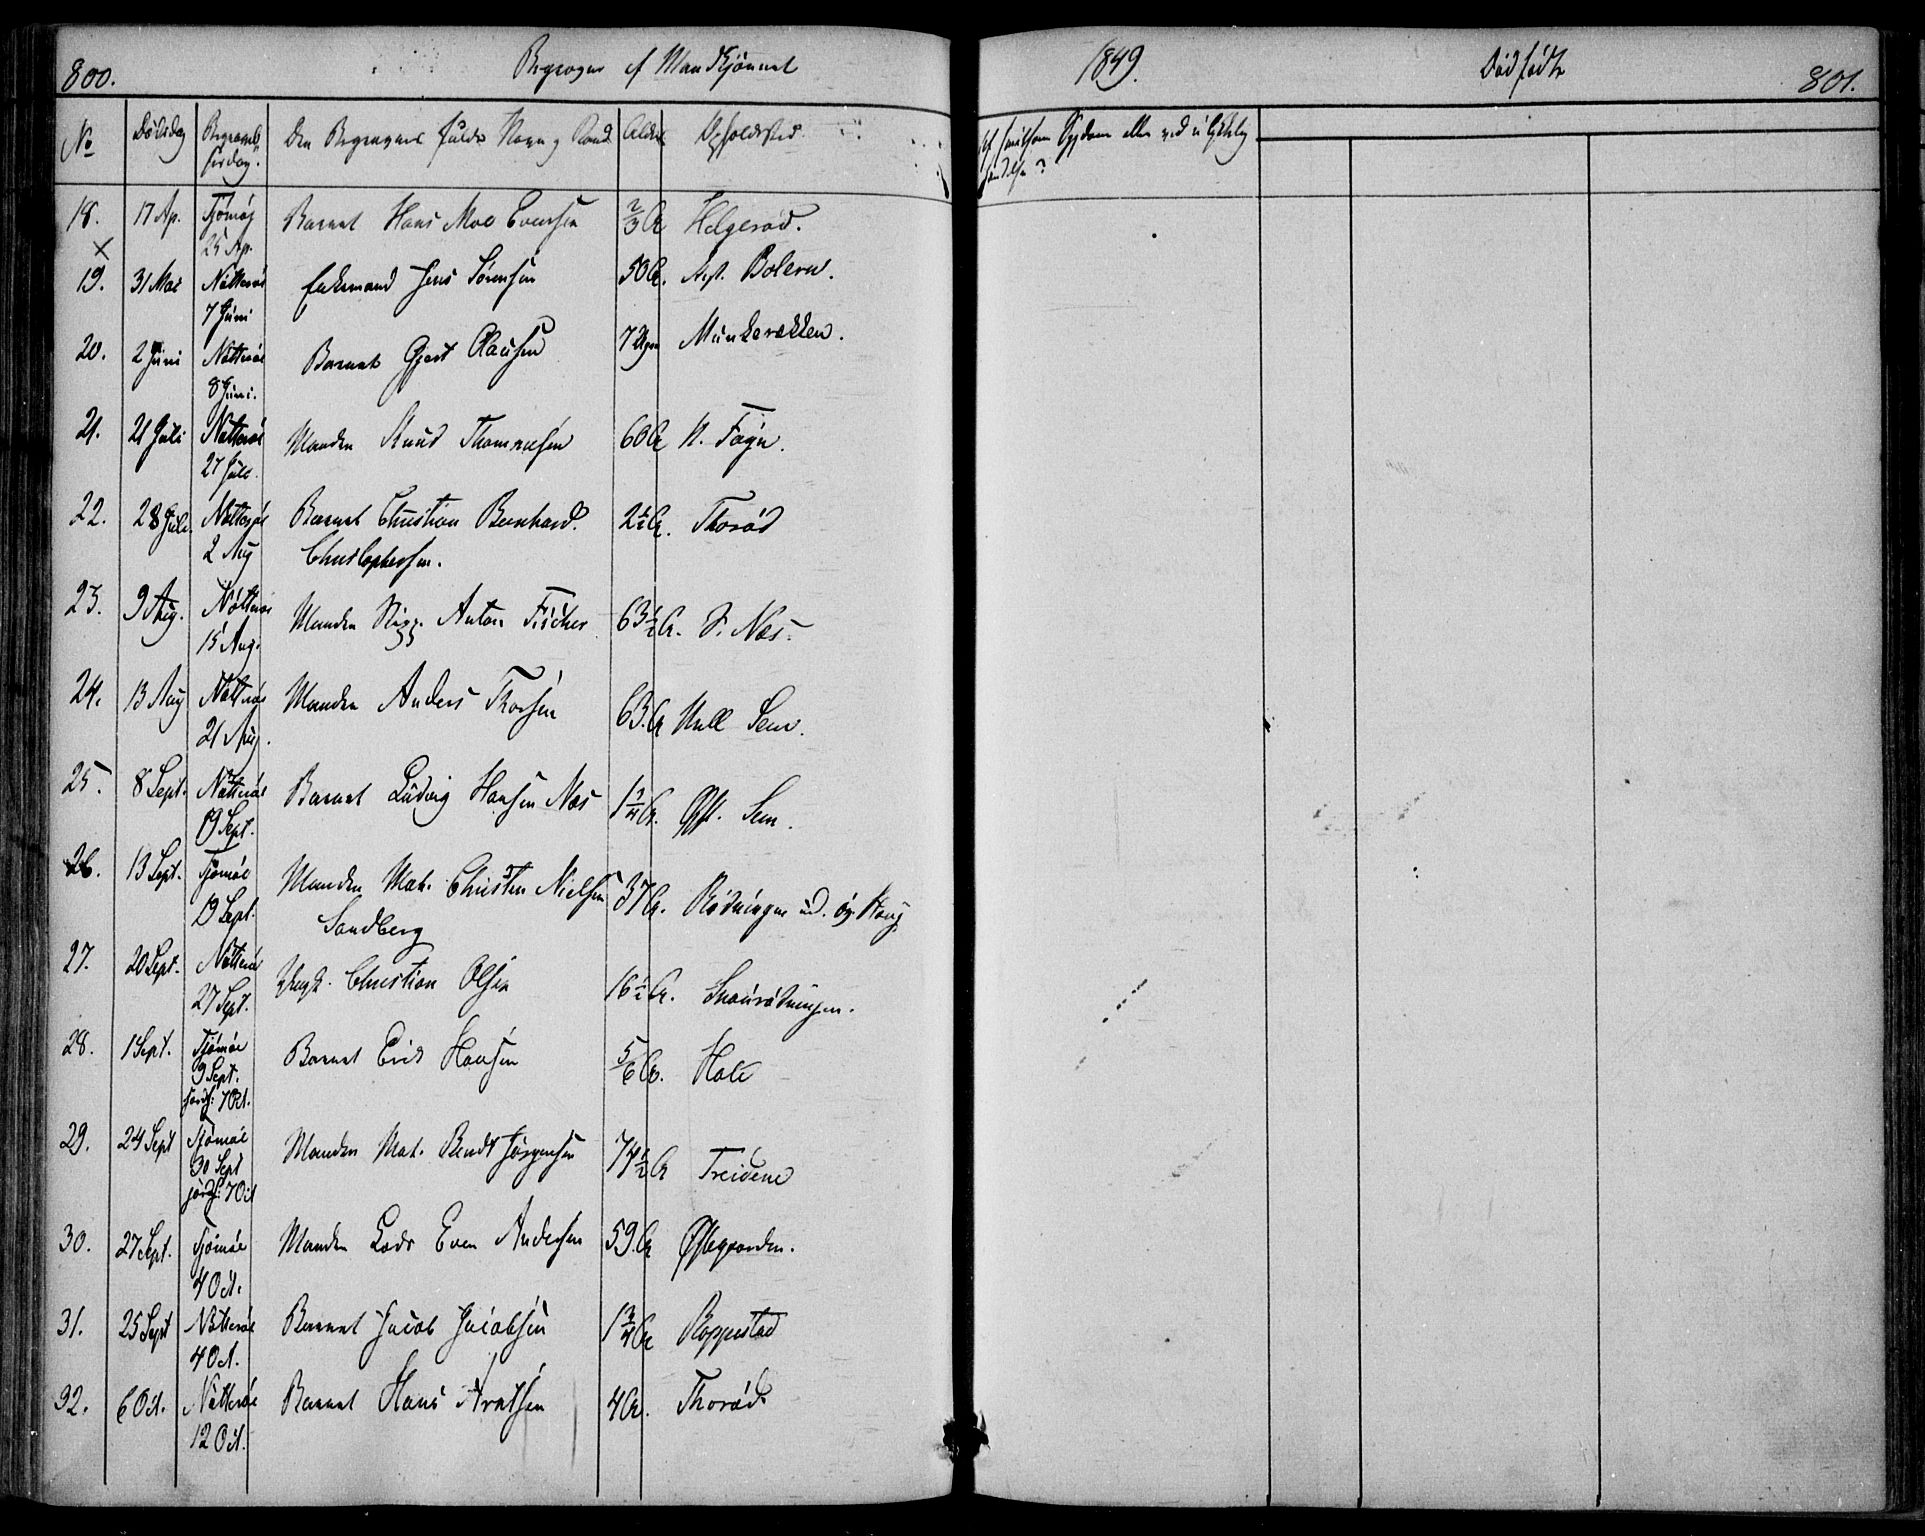 800. Begravne af Mandkjønnet
No Dødsdag Begravelsesdag. Den Begravnes fulde Navn og Stand Alder Opholdssted
18. 17 Ap. Tjømøe 25 Ap. Barnet Hans Moe Evensen 2/3 A Helgerød.
X
19. 31 Mai Nøtterøe 7 Juni Enkemand Jens Sørensen 50 A. Bolern.
20. 2 Juni Nøtterøe 8 Juni. Barnet Gjert Clausen 7 Uger Munkerekken.
21. 21 Juli Nøtterøe 27 Juli. Manden Knud Thommesen 60 A N. Føyn.
22. 28 Juli Nøtterøe 2 Aug Barnet Christian Bernhard 2 1/2 A. Thorød
Christophersen.
23. 9 Aug. Nøtterøe 15 Aug. Manden Skipp. Anton Fischer 63 1/2 A. S. Næs.
24. 13 Aug Nøtterøe 21 Aug. Manden Anders Thorsen 63. A Sem.
25. 8 Sept. Nøtterøe 19 Sept. Barnet Ludvig Hansen Næs 1 3/4 A. Sem.
26. 13 Sept. Tjømøe 19 Sept. Manden Mat. Christen Nielsen 37 A. Rødningen
Sandberg
27. 20 Sept. Nøtterøe 27 Sept. Christian Olsen 16 1/2 A. Snaurødningen.
28. 1 Sept. Tjømøe 9 Sept. jordf. 7 Oct. Barnet Erik Hansen 5/6 A. Hole
29. 24 Sept Tjømøe 30 Sept jordf. 7 Oct Manden Mat. Bendt Jørgensen 74 1/2 A Treidene
30. 27 Sept. Tjømøe 4 Oct. Manden Lods Even Andersen 59. A Østegaarden.
31. 25 Sept Nøtterøe 4 Oct. Barnet Jacob Jacobsen 1 3/4 A Roppestad
32. 6 Oct. Nøtterøe 12 Oct. Barnet Hans Arntsen 4 A. Thorød
1849. Dødfødte 801.
Af smitsom Sygdom eller ved ulykkelig
Hændelse?